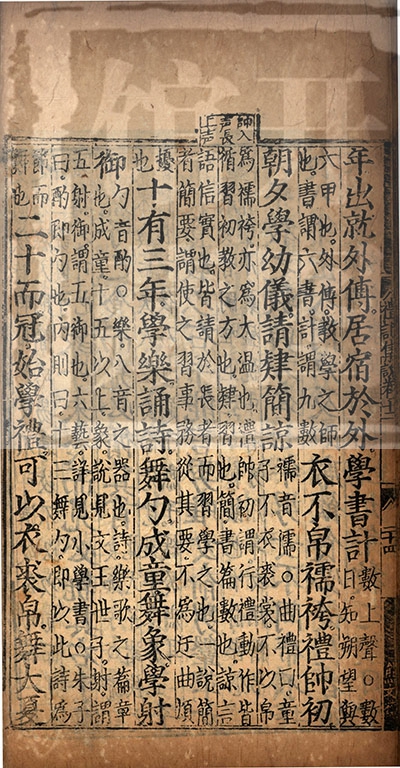 帥入
声長
上声
年出就外傅居宿於外學書計
數上聲○數
日知朔望與
六甲也外傅教學之師
也書謂六書計謂九數
衣不帛襦袴禮帥初
朝夕學幼儀請肄簡諒
襦音儒○曲禮曰童
子不衣裘裳不以帛
爲襦袴亦爲大温也禮帥初謂行禮動作皆
循習初教之方也肄習也簡書篇數也諒言
語信實也皆請於長者而習學之也一說簡
者簡要謂使之習事務從其要不爲迂曲煩
擾
也
十有三年學樂誦詩舞勺成童舞象學射
御
勺音酌○樂八音之器也詩樂歌之篇章
也成童十五以上象說見文王世子射謂
五射御謂五御也六藝詳見小學書○朱子
曰酌即勺也內則曰十三舞勺即以此詩爲
節而
舞也
二十而冠始學禮可以衣裘帛舞大夏